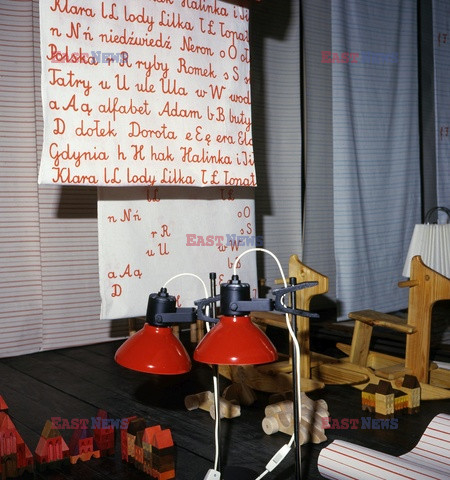 hak Halinka i Ii
Klara l L lody Lilka ł Ł Topat
n N ń niedźwiedź Neron o O oł
Polska r R ryby Romek s S s
Tatry u U ule Ula w W wod
a A ą alfabet Adam b B buty
D dołek Dorota e E ę era Ela
Gdynia h H hak Halinka i Ii
Klara l L lody Lilka ł Ł Topat
l L ł Ł
n N ń o O
r R s S
u U w W
a A ą b B
D
EAST NEWS
EAST NEWS
EAST NEWS
EAST NEWS
EAST NEWS